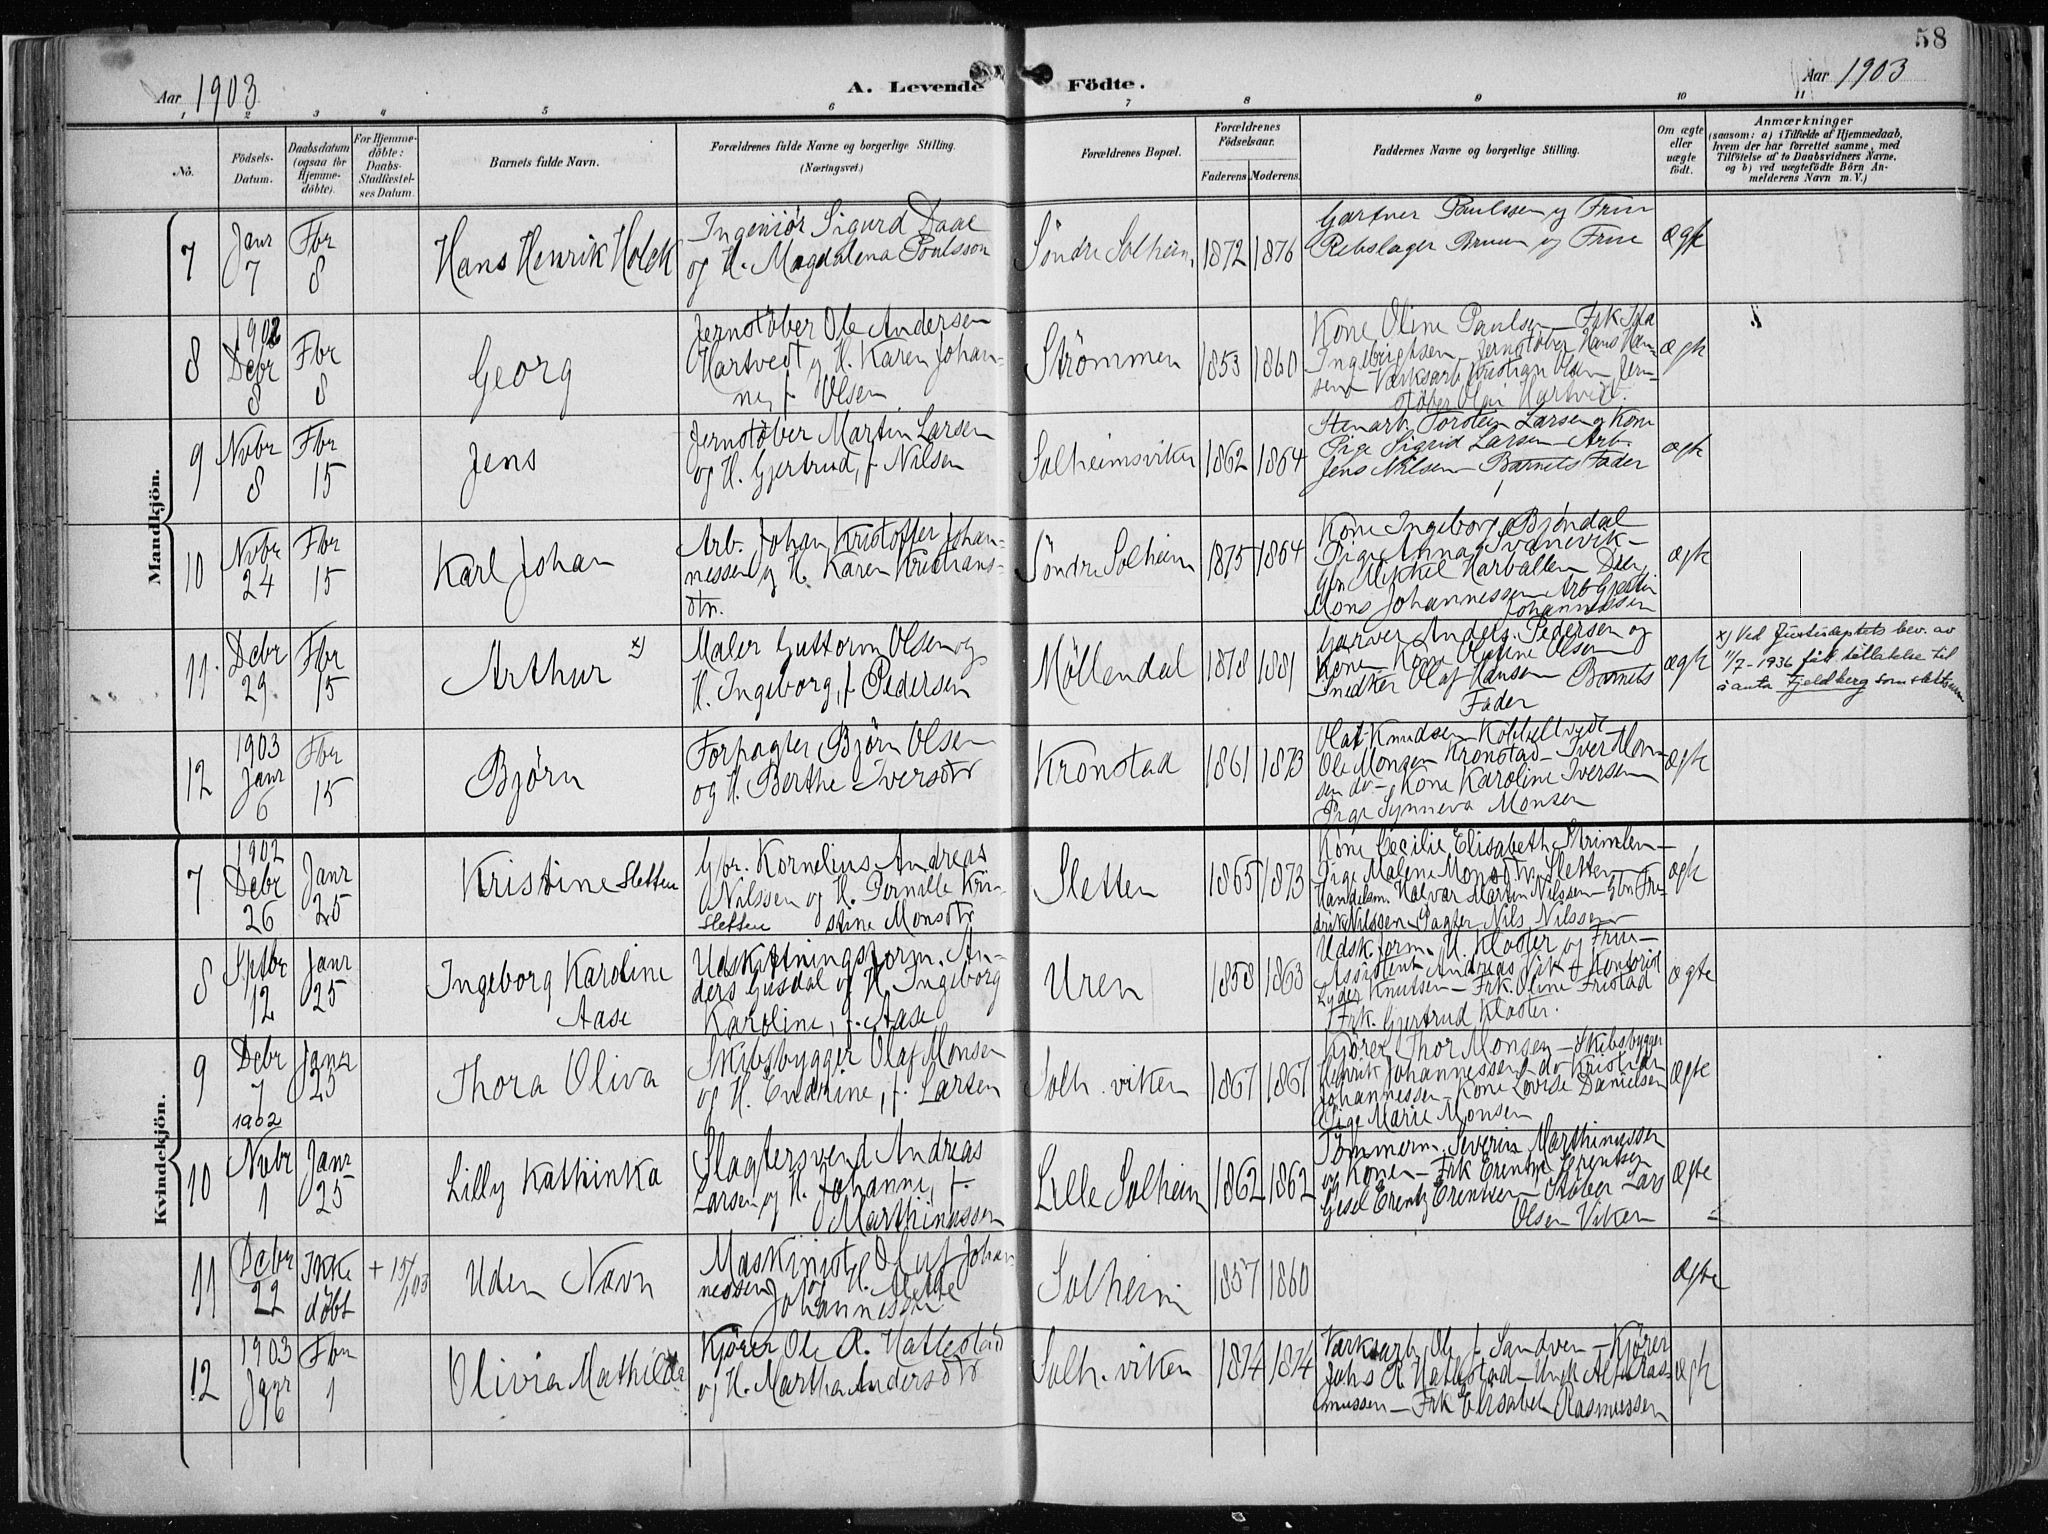 58
Aar 1903
A. Levende Födte.
Aar 1903
1 2 3 4 5 6 7 8 9 10 11
No.
Födsels-
Datum.
Daabsdatum
(ogsaa for
Hjemme-
döbte).
For Hjemme-
döbte:
Daabs-
Stadfæstel-
ses Datum.
Barnets fulde Navn.
Forældrenes fulde Navne og borgerlige Stilling.
(Næringsvei.)
Forældrenes Bopæl.
Forældrenes
Födselsaar.
Faderens. Moderens.
Faddernes Navne og borgerlige Stilling.
Om ægte
eller
uægte
födt.
Anmærkninger
(saasom: a) i Tilfælde af Hjemmedaab,
hvem der har forrettet samme, med
Tilföielse af to Daabsvidners Navne,
og b) ved uægtefödte Börn An-
melderens Navn m. V.)
Mandkjön.
7
Janr
7
Fbr
8
Hans Henrik Holck
Ingeniör Sigurd Daae
og H. Magdalena Poulsson
Söndre Solheim
1872
1876
Gartner Paulssen og Frue
Rebslager Bruun og Frue
ægte
8
1902
Debr
8
Fbr
8
Georg
Jernstöber Ole Andersen
Hartvedt og H. Karen Johan-
ne, f. Olsen
Strömmen
1853
1860
Kone Oline Paulsen – Frk Ida
Ingebrigtsen – Jernstöber Hans Han-
sen – Værksarb. Kristian Olsen Jern-
stöber Olai Hartvedt.
ægte
9
Novbr
8
Fbr
15
Jens
Jernstöber Martin Larsen
og H. Gjertrud, f. Nilsen
Solheimsviken
1862
1864
Stenarb. Torstein Larsen og Kone
Pige Sigrid Larsen – Arb.
Jens Nilsen – Barnets Fader
ægte
10
Nvbr
24
Fbr
15
Karl Johan
Arb. Johan Kristoffer Johan-
nessen og H. Karen Kristians-
dtr.
Söndre Solheim
1875
1864
Kone Ingeborg Bjöndal –
Pige Anna Svanevik –
Gbr Mikkel
Mons Johannessen Arb
Johannessen
ægte
11.
Debr
29
Fbr
15
Arthur x)
Maler Guttorm Olsen og
H. Ingeborg, f. Pedersen
Möllendal
1878
1881
Garver Anders Pedersen og
Kone – Kone Oline Olsen
Snedker Olaf Hansen – Barnets
Fader
ægte
x) Ved Justisdeptets bev. av
11/7-1936 fått tillatelse til
å anta Fjeldberg som slektsnavn
12
1903
Janr
6
Fbr
15
Björn
Forpagter Björn Olsen
og H. Berthe Iversdtr
Kronstad
1861
1873
Olai Knudsen Kobbeltvedt
Ole Monsen Kronstad – Iver Mon-
sen do. – Kone Karoline Iversen
Pige Synneva Monsen
ægte
Kvindekjön.
7
1902
Debr
26
Janr
25
Kristine Sletten
Gbr. Kornelius Andreas
Nilssen og H. Pernille Kri-
Sletten stine Monsdtr
Sletten
1865
1873
Kone Cecilie Elisabeth
Pige Malene Monsdtr Sletten –
Handelsm. Halvar Martin Nilssen – Gbr Fre-
drik Nilssen – Pagter Nils Nilssen
ægte
8
Sptbr
12
Janr
25
Ingeborg Karoline
Aase
Udskiftningsform. An-
ders Gusdal og H. Ingeborg
Karoline, f. Aase
Uren
1858
1863
Udsk.form. H. Kloster og Frue –
Assistent Andreas Vik – Kontorist
Lyder Knudsen – Frk. Oline Fristad
Frk. Gjertrud Kloster.
ægte
9
Debr
7
1902
Janr
25
Thora Oliva
Skibsbygger Olaf Monsen
og H. Endrine, f. Larsen
Solh. viken
1867
1867
Kjörer Thor Monsen – Skibsbygger
Henrik Johannessen do Kristian
Johannessen – Kone Lovise Danielsen
Pige Marie Monsen
ægte
10
Nvbr
1
Janr
25
Lilly Kathinka
Slagtersvend Andreas
Larsen og H. Johanne, f.
Marthinussen
Lille Solheim
1862
1862
Tömmerm. Severin Marthinussen
og Kone – Frk Erentse Erentsen
Gesel Erentz Erentsen – Stöber Lars
Olsen Viken
ægte
11
Debr
22
Ikke
döbt
+ 15/1 03
Uden Navn
Maskinist Oluf Johan
nessen og H. Mette
Johannessen
Solheim
1857
1860
ægte
12
1903
Janr
6
Fbr
1
Olivia Mathilde
Kjörer Ole R. Hattestad
og H. Martha Andersdtr
Solh. viken
1874
1874
Værksarb. Ole J. Sandven – Kjörer
Johs R Hattestad – Ungk Alf Ras-
mussen – Frk Elisabet Rasmussen
ægte